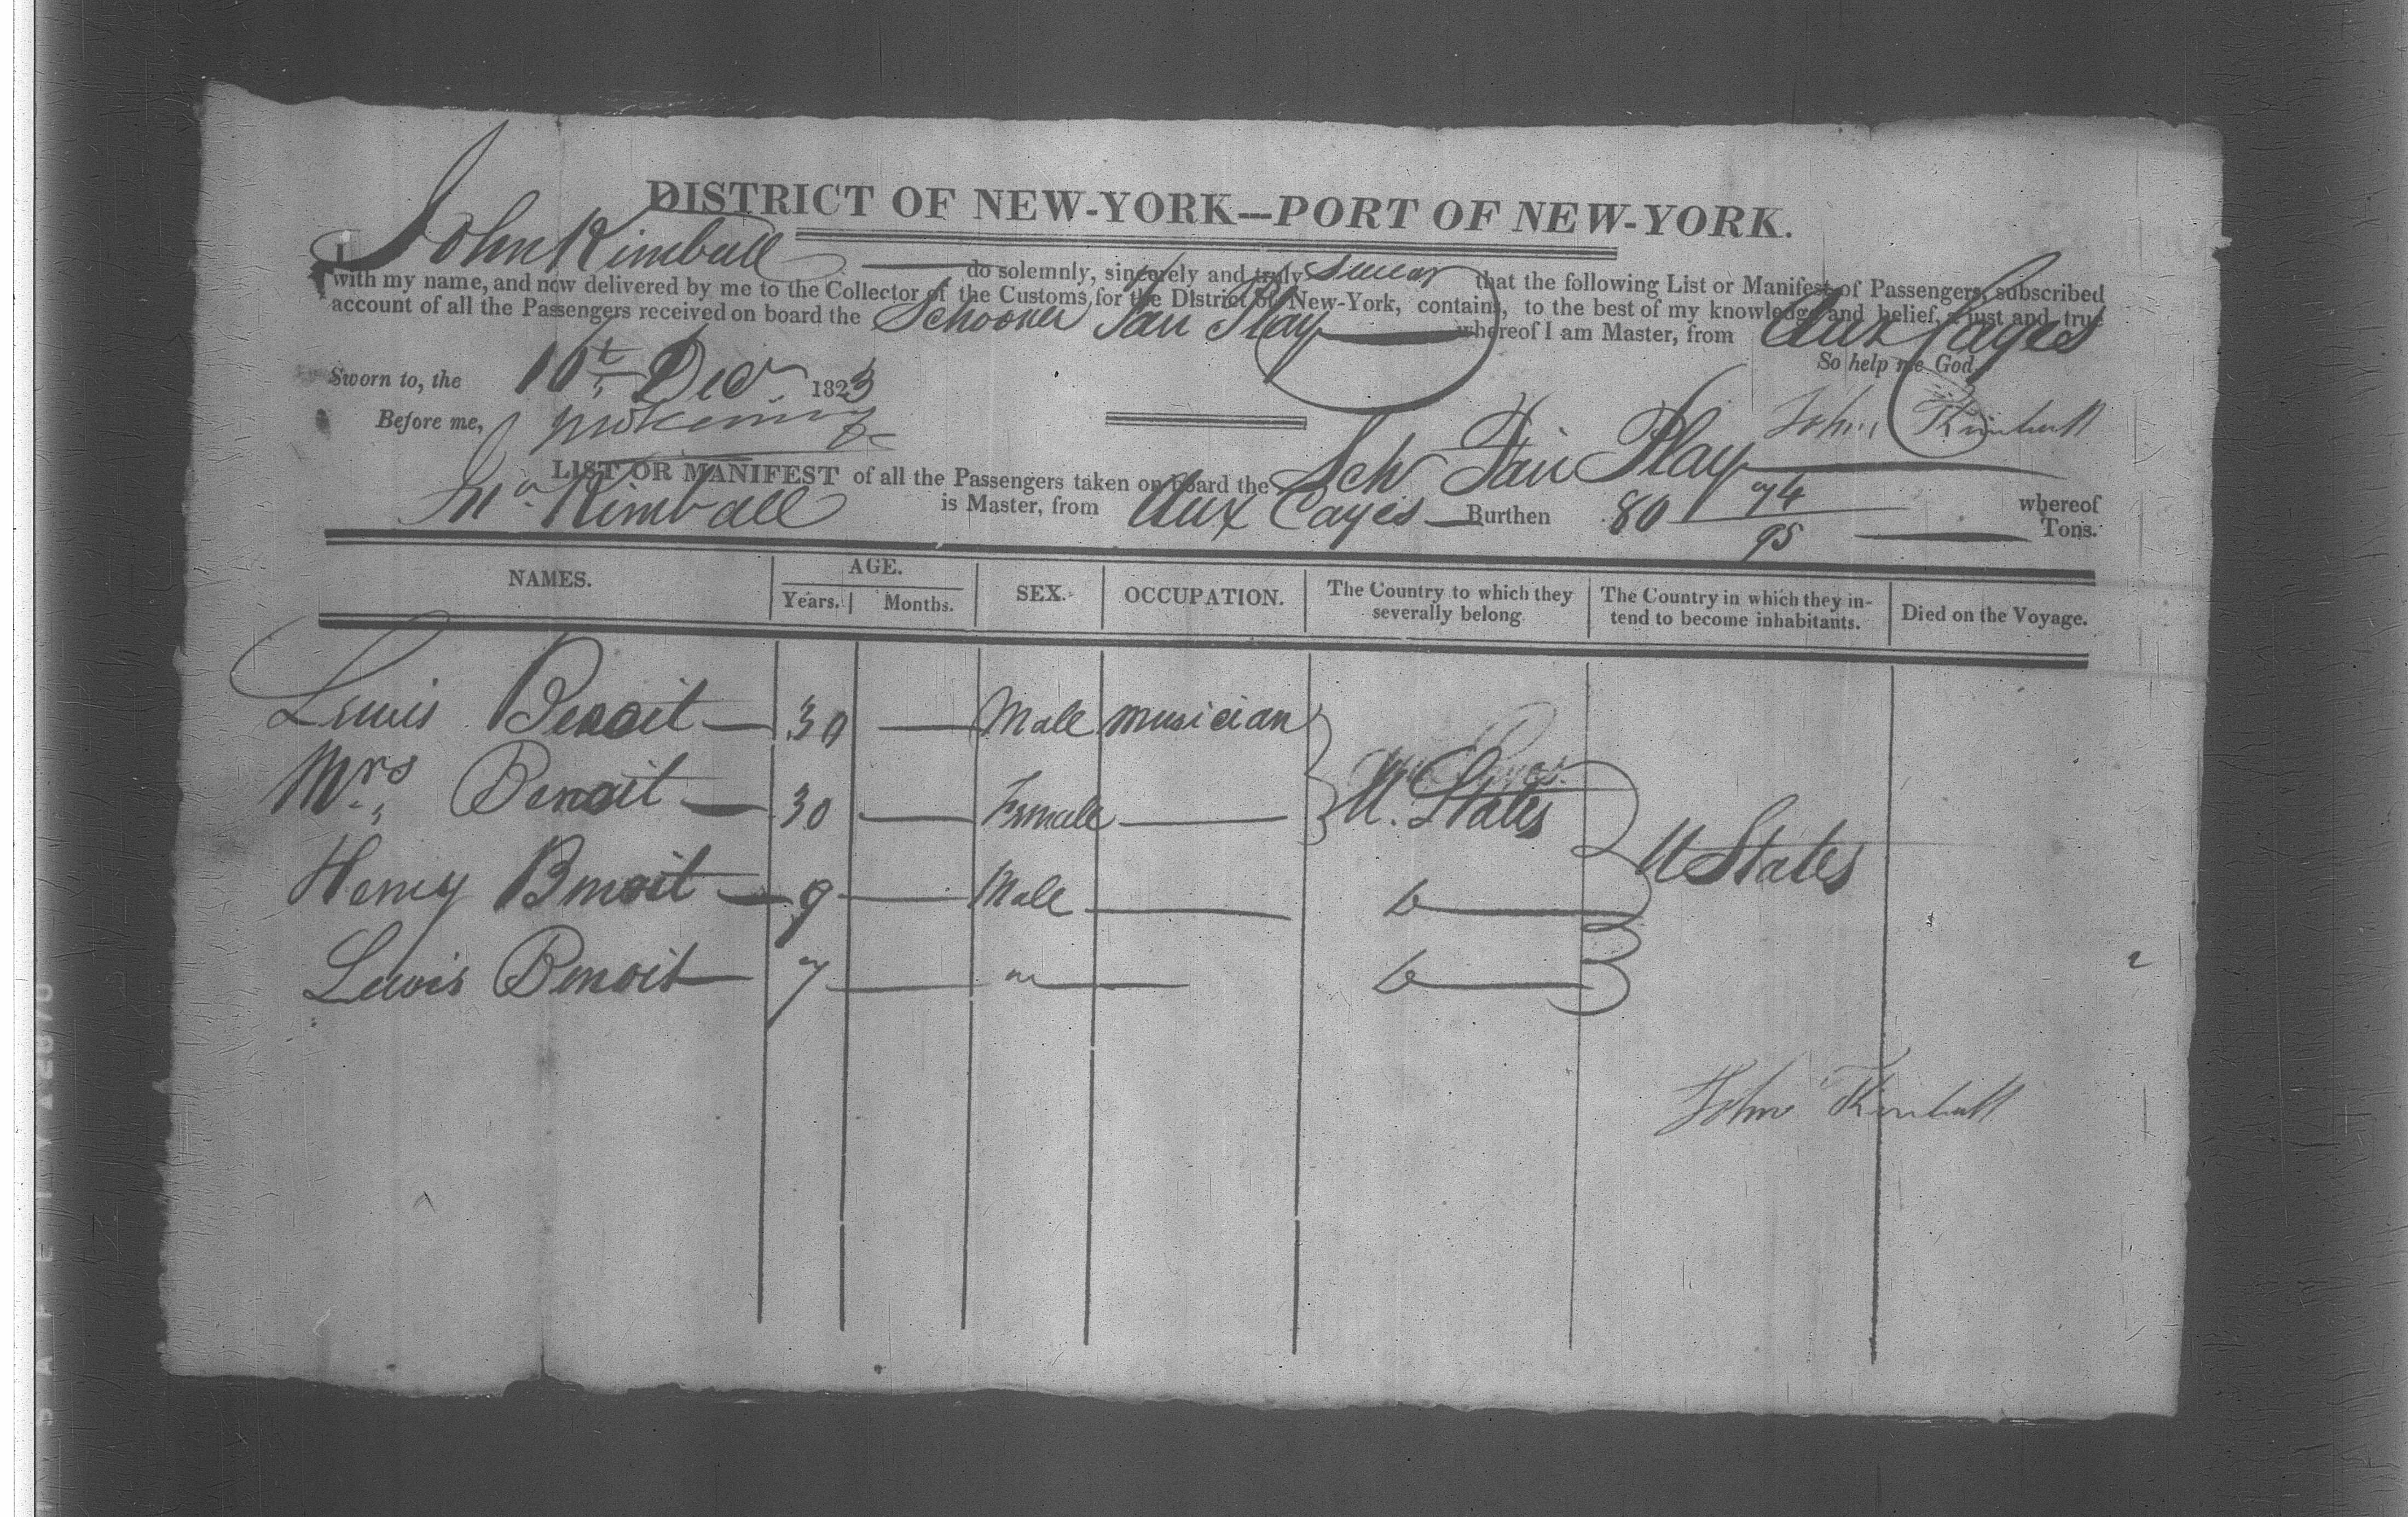 DISTRICT OF NEW-YORK—PORT OF NEW-YORK.
I John Kimball do solemnly, sincerely and truly swear that the following List or Manifest of Passengers, subscribed
with my name, and now delivered by me to the Collector of the Customs, for the District of New-York, contains, to the best of my knowledge and belief, a just and true
account of all the Passengers received on board the Schooner Fair Play whereof I am Master, from Aux Cayes
So help me God.
Sworn to, the 16th Decr 1823
Before me,
John Kimball
LIST OR MANIFEST of all the Passengers taken on board the Sch Fair Play whereof
Mr Kimball is Master, from Aux Cayes Burthen 80 74/95 Tons.
NAMES. AGE. SEX. OCCUPATION. The Country to which they severally belong The Country in which they intend to become inhabitants. Died on the Voyage.
Years. Months.
Lewis Benoit 30 Male musician
Mrs Benoit 30 Female U. States
Henry Benoit 9 Male U States
Lewis Benoit 7
John Kimball